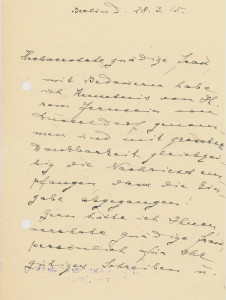 Berlin d. 28.3.15.
Hochverehrte gnädige Frau
mit Bedauern habe
ich Kenntnis vom
Herrn
genom
men und mit grösster
Dankbarkeit gleichzei
tig die Nachricht em
pfangen dass die Ein
gabe abgegangen!
Gern hätte ich Ihnen
verehrte gnädige Frau
persönlich für Ihr
gütiges Schreiben u.